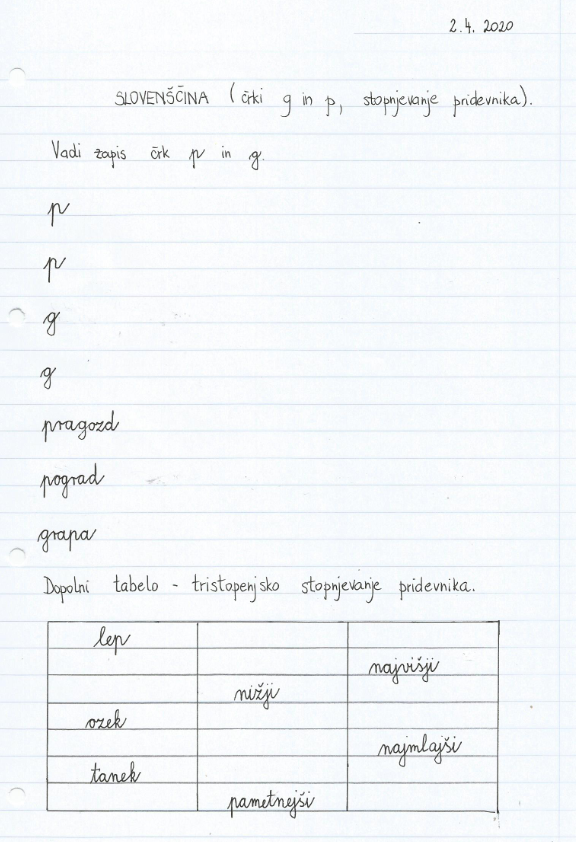 2.4. 2020
SLOVENŠČINA (črki g in p, stopnjevanje pridevnika).
Vadi zapis črk p in g.
p
p
g
g
pragozd
pograd
grapa
Dopolni tabelo - tristopenjsko stopnjevanje pridevnika.
lep
najvišji
nižji
ozek
najmlajši
tanek
pametnejši